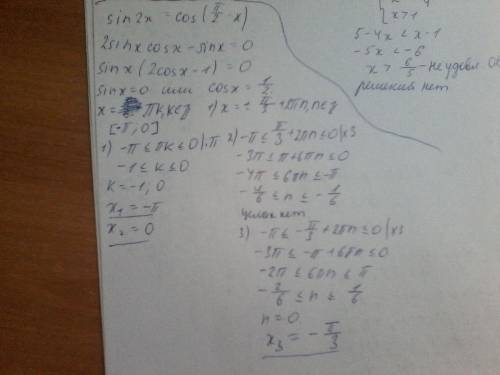 sin2x = cos(π/2 - x)
2sinx cosx - sinx = 0
sinx(2cosx - 1) = 0
sinx=0 или cosx = 1/2
x = πk, k∈z 1) x = ± π/3 + 2πn, n∈z
[-π; 0]
1) -π ≤ πk ≤ 0 |:π
-1 ≤ k ≤ 0
k = -1; 0
x₁ = -π
x₂ = 0
2) -π ≤ π/3 + 2πn ≤ 0 |x3
-3π ≤ π + 6πn ≤ 0
-4π ≤ 6πn ≤ -π
-4/6 ≤ n ≤ -1/6
целых нет
3) -π ≤ -π/3 + 2πn ≤ 0 |x3
-3π ≤ -π + 6πn ≤ 0
-2π ≤ 6πn ≤ π
-2/6 ≤ n ≤ 1/6
n = 0
x₃ = -π/3
x>1
5-4x < x-1
-5x < -6
x > 6/5 - не удовл
решений нет